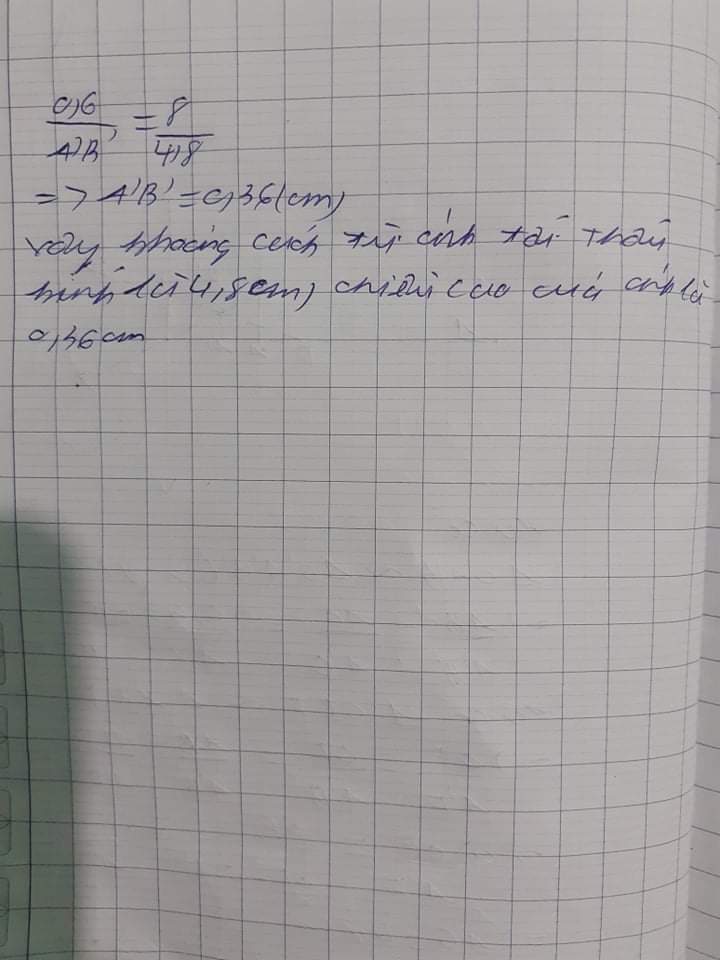 0,6 / A'B' = 8 / 4,8
=> A'B' = 0,36 (cm)
Vậy khoảng cách từ ảnh tới thấu
kính là 4,8cm, chiều cao của ảnh là
0,36 cm